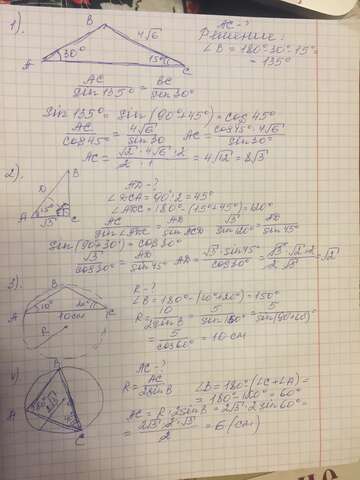 1).
B
4√6
A
30°
15°
C
AC - ?
Решение:
∠B = 180°-30°-15° =
= 135°
AC/sin135° = BC/sin30°
sin135° = sin(90°+45°) = cos45°
AC/cos45° = 4√6/sin30 AC = cos45°·4√6/sin30°
AC = √2·4√6·2/2·1 = 4√12 = 8√3
2).
B
D
A
√3
C
AD - ?
∠DCA = 90°:2 = 45°
∠ADC = 180°-(15°+45°) = 120°
AC/sin∠ADC = AD/sin∠ACD = √3/sin120° = AD/sin45°
sin(90°+30°) = cos30°
√3/cos30° = AD/sin45° AD = √3·sin45°/cos30° = √3·√2·2/2√3 = √2
3)
B
A
10°
20°
C
10cm
R
R - ?
∠B = 180°-(10°+20°) = 150°
R = 10/2sinB = 5/sin150° = 5/sin(90+60°) =
= 5/cos60° = 10 см
4)
B
A
80°
2√3
C
AC - ?
R = AC/2sinB
∠B = 180°(∠C+∠A) =
= 180°-120° = 60°
AC = R·2sinB = 2√3·2sin60° =
= 2√3·2·√3/2 = 6 (см)